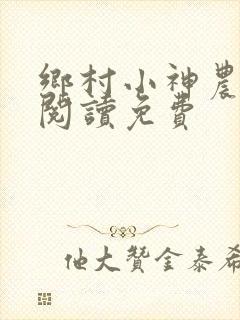 鄉村小神農
閱讀免費
他大贊金泰希